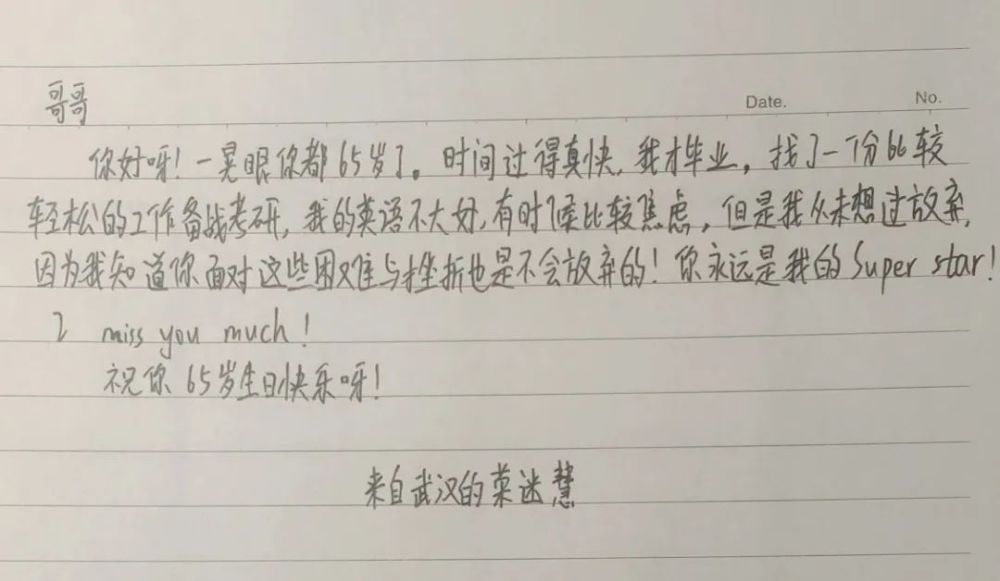 哥哥
Date.
No.
你好呀！一晃眼你都65岁了。时间过得真快，我才毕业，找了一份比较
轻松的工作备战考研，我的英语不大好，有时候比较焦虑，但是我从未想过放弃，
因为我知道你面对这些困难与挫折也是不会放弃的！你永远是我的Super star！
I miss you much！
祝你65岁生日快乐呀！
来自武汉的荣迷慧